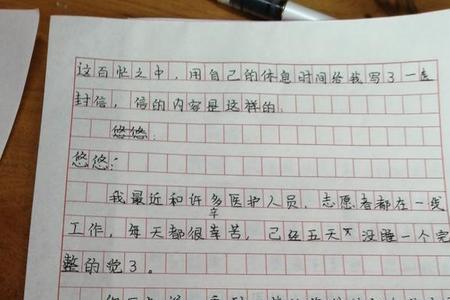 过百忙之中，用自己的休息时间给我写了一
封信，信的内容是这样的
悠悠：
悠悠：
我最近和许多医护人员、志愿者都在一线
工作，每天都很辛苦，已经五天没睡一个完
整的觉了。